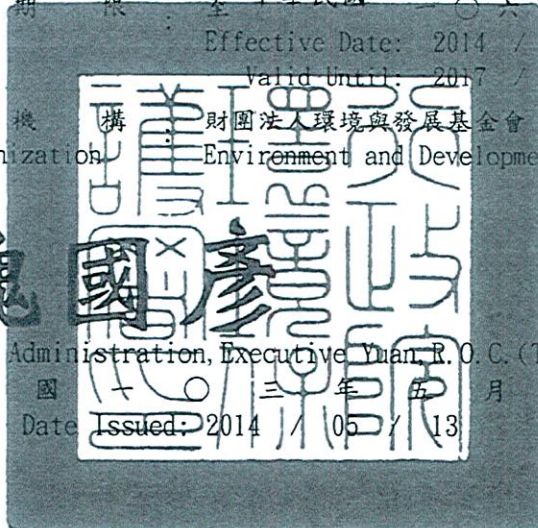 期 限 : 至 中華民國 一 〇 六
Effective Date: 2014 /
Valid Until: 2017 /
機 構 : 財團法人環境與發展基金會
nization Environment and Developme
魏國彥
Administration, Executive Yuan, R.O.C.(T
國 一 〇 三 年 五 月
Date Issued: 2014 / 05 / 13
行政院環境保護署